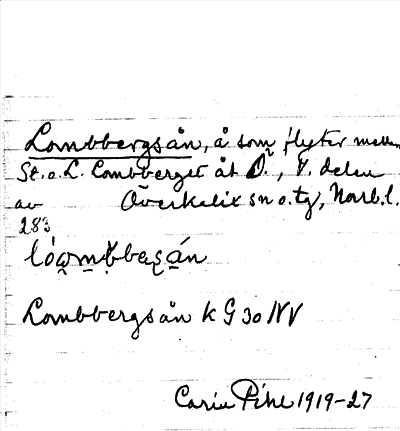 Lombbergsån, å som flyter mellan
St. o. L. Lombberget åt Ö., V. delen
av Överkalix sn o. tg, Norrb. l.
283
Lombbergsån k G 30 NV
Carin Pihl 1919-27